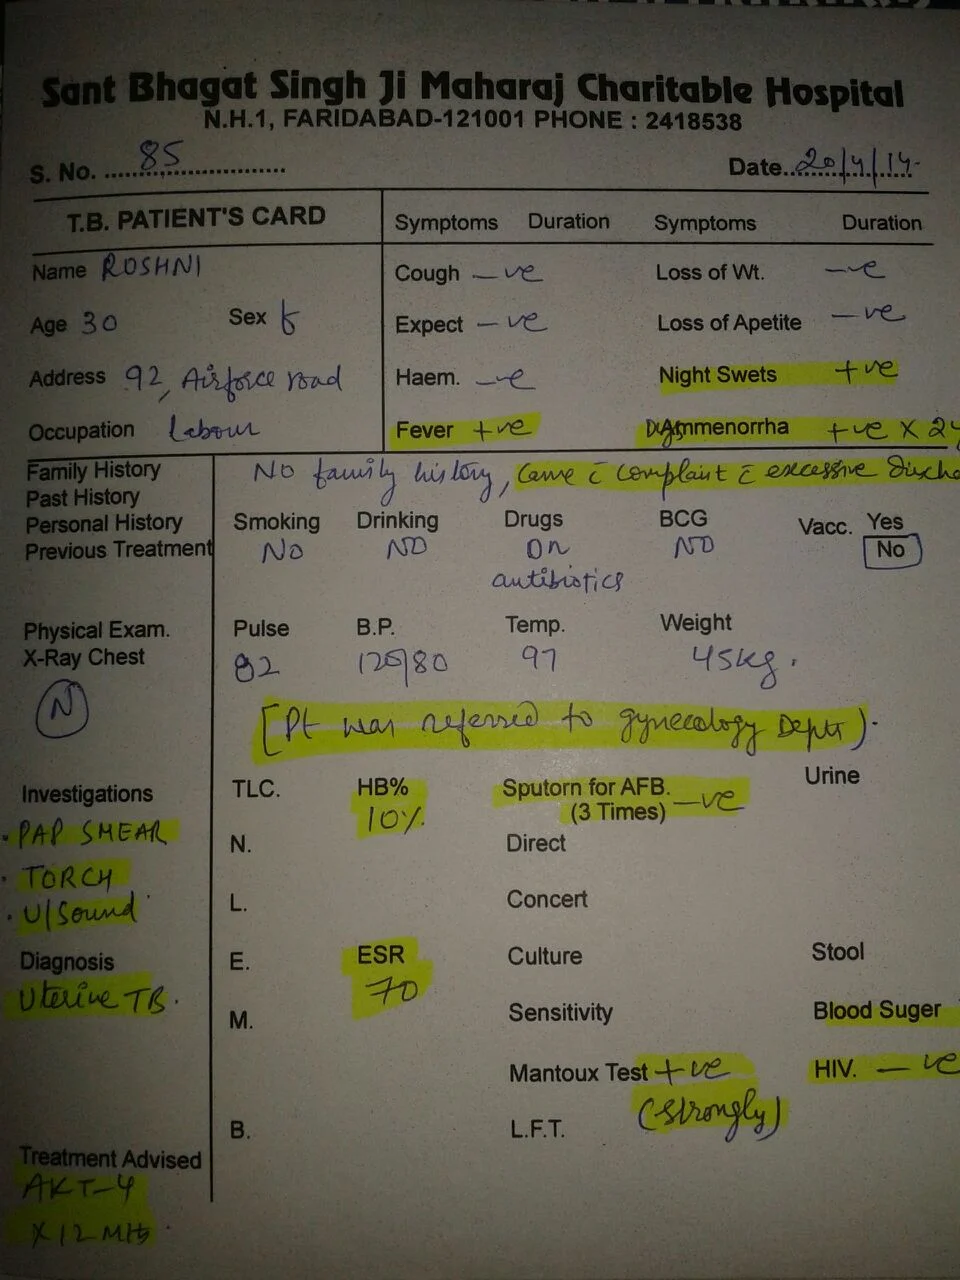 Sant Bhagat Singh Ji Maharaj Charitable Hospital
N.H.1, FARIDABAD-121001 PHONE : 2418538
S. No. 85 Date 20/4/14
T.B. PATIENT'S CARD Symptoms Duration Symptoms Duration
Name ROSHNI Cough -ve Loss of Wt. -ve
Age 30 Sex f Expect -ve Loss of Apetite -ve
Address 92, Airforce road Haem. -ve Night Swets +ve
Occupation Labour Fever +ve Dys Ammenorrha +ve X 2
Family History No family history, Came c̄ complaint c̄ excessive
Past History
Personal History Smoking Drinking Drugs BCG Vacc. Yes
Previous Treatment No NO on NO No
antibiotics
Physical Exam. Pulse B.P. Temp. Weight
X-Ray Chest 82 120/80 97 45kg.
N
[Pt was referred to gynecology Deptt).
Investigations TLC. HB% Sputorn for AFB. -ve Urine
10% (3 Times)
PAP SMEAR N. Direct
TORCH L. Concert
U/Sound
Diagnosis E. ESR Culture Stool
Uterine TB. 70
M. Sensitivity Blood Suger
Mantoux Test +ve HIV. -ve
(Strongly)
B. L.F.T.
Treatment Advised
AKT-4
X 12 Mths